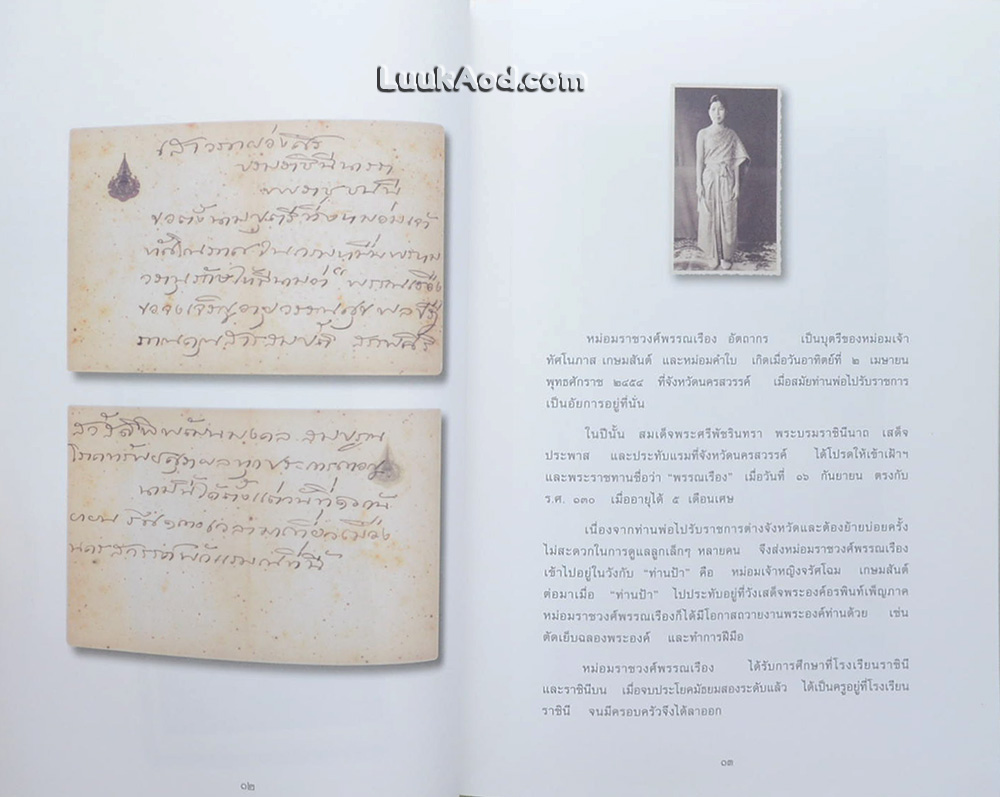 LuukAod.com
เสาวภาผ่องศรี
บรมราชินีนารถ
พระราชชนนี
ขอตั้งนามบุตรีที่ของหม่อมเจ้า
ทัศโนภาศ
ให้มีนามว่า พรรณเรือง
ขอจงเจริญอายุวรรณศุขพล
สวัสดิพิพัฒนมงคล สมบูรณ
ทุกประการ
นามนี้ได้ตั้งแต่วันที่ ๑๖ กัน
ยายน
๑๒
หม่อมราชวงศ์พรรณเรือง อัตถากร เป็นบุตรีของหม่อมเจ้า
ทัศโนภาส เกษมสันต์ และหม่อมคำใบ เกิดเมื่อวันอาทิตย์ที่ ๒ เมษายน
พุทธศักราช ๒๔๕๔ ที่จังหวัดนครสวรรค์ เมื่อสมัยท่านพ่อไปรับราชการ
เป็นอัยการอยู่ที่นั่น
ในปีนั้น สมเด็จพระศรีพัชรินทรา พระบรมราชินีนาถ เสด็จ
ประพาส และประทับแรมที่จังหวัดนครสวรรค์ ได้โปรดให้เข้าเฝ้าฯ
และพระราชทานชื่อว่า “พรรณเรือง” เมื่อวันที่ ๑๖ กันยายน ตรงกับ
ร.ศ. ๑๓๐ เมื่ออายุได้ ๕ เดือนเศษ
เนื่องจากท่านพ่อไปรับราชการต่างจังหวัดและต้องย้ายบ่อยครั้ง
ไม่สะดวกในการดูแลลูกเล็กๆ หลายคน จึงส่งหม่อมราชวงศ์พรรณเรือง
เข้าไปอยู่ในวังกับ “ท่านป้า” คือ หม่อมเจ้าหญิงจรัศโฉม เกษมสันต์
ต่อมาเมื่อ “ท่านป้า” ไปประทับอยู่ที่วังเสด็จพระองค์อรพินท์เพ็ญภาค
หม่อมราชวงศ์พรรณเรืองก็ได้มีโอกาสถวายงานพระองค์ท่านด้วย เช่น
ตัดเย็บฉลองพระองค์ และทำการฝีมือ
หม่อมราชวงศ์พรรณเรือง ได้รับการศึกษาที่โรงเรียนราชินี
และราชินีบน เมื่อจบประโยคมัธยมสองระดับแล้ว ได้เป็นครูอยู่ที่โรงเรียน
ราชินี จนมีครอบครัวจึงได้ลาออก
๑๓